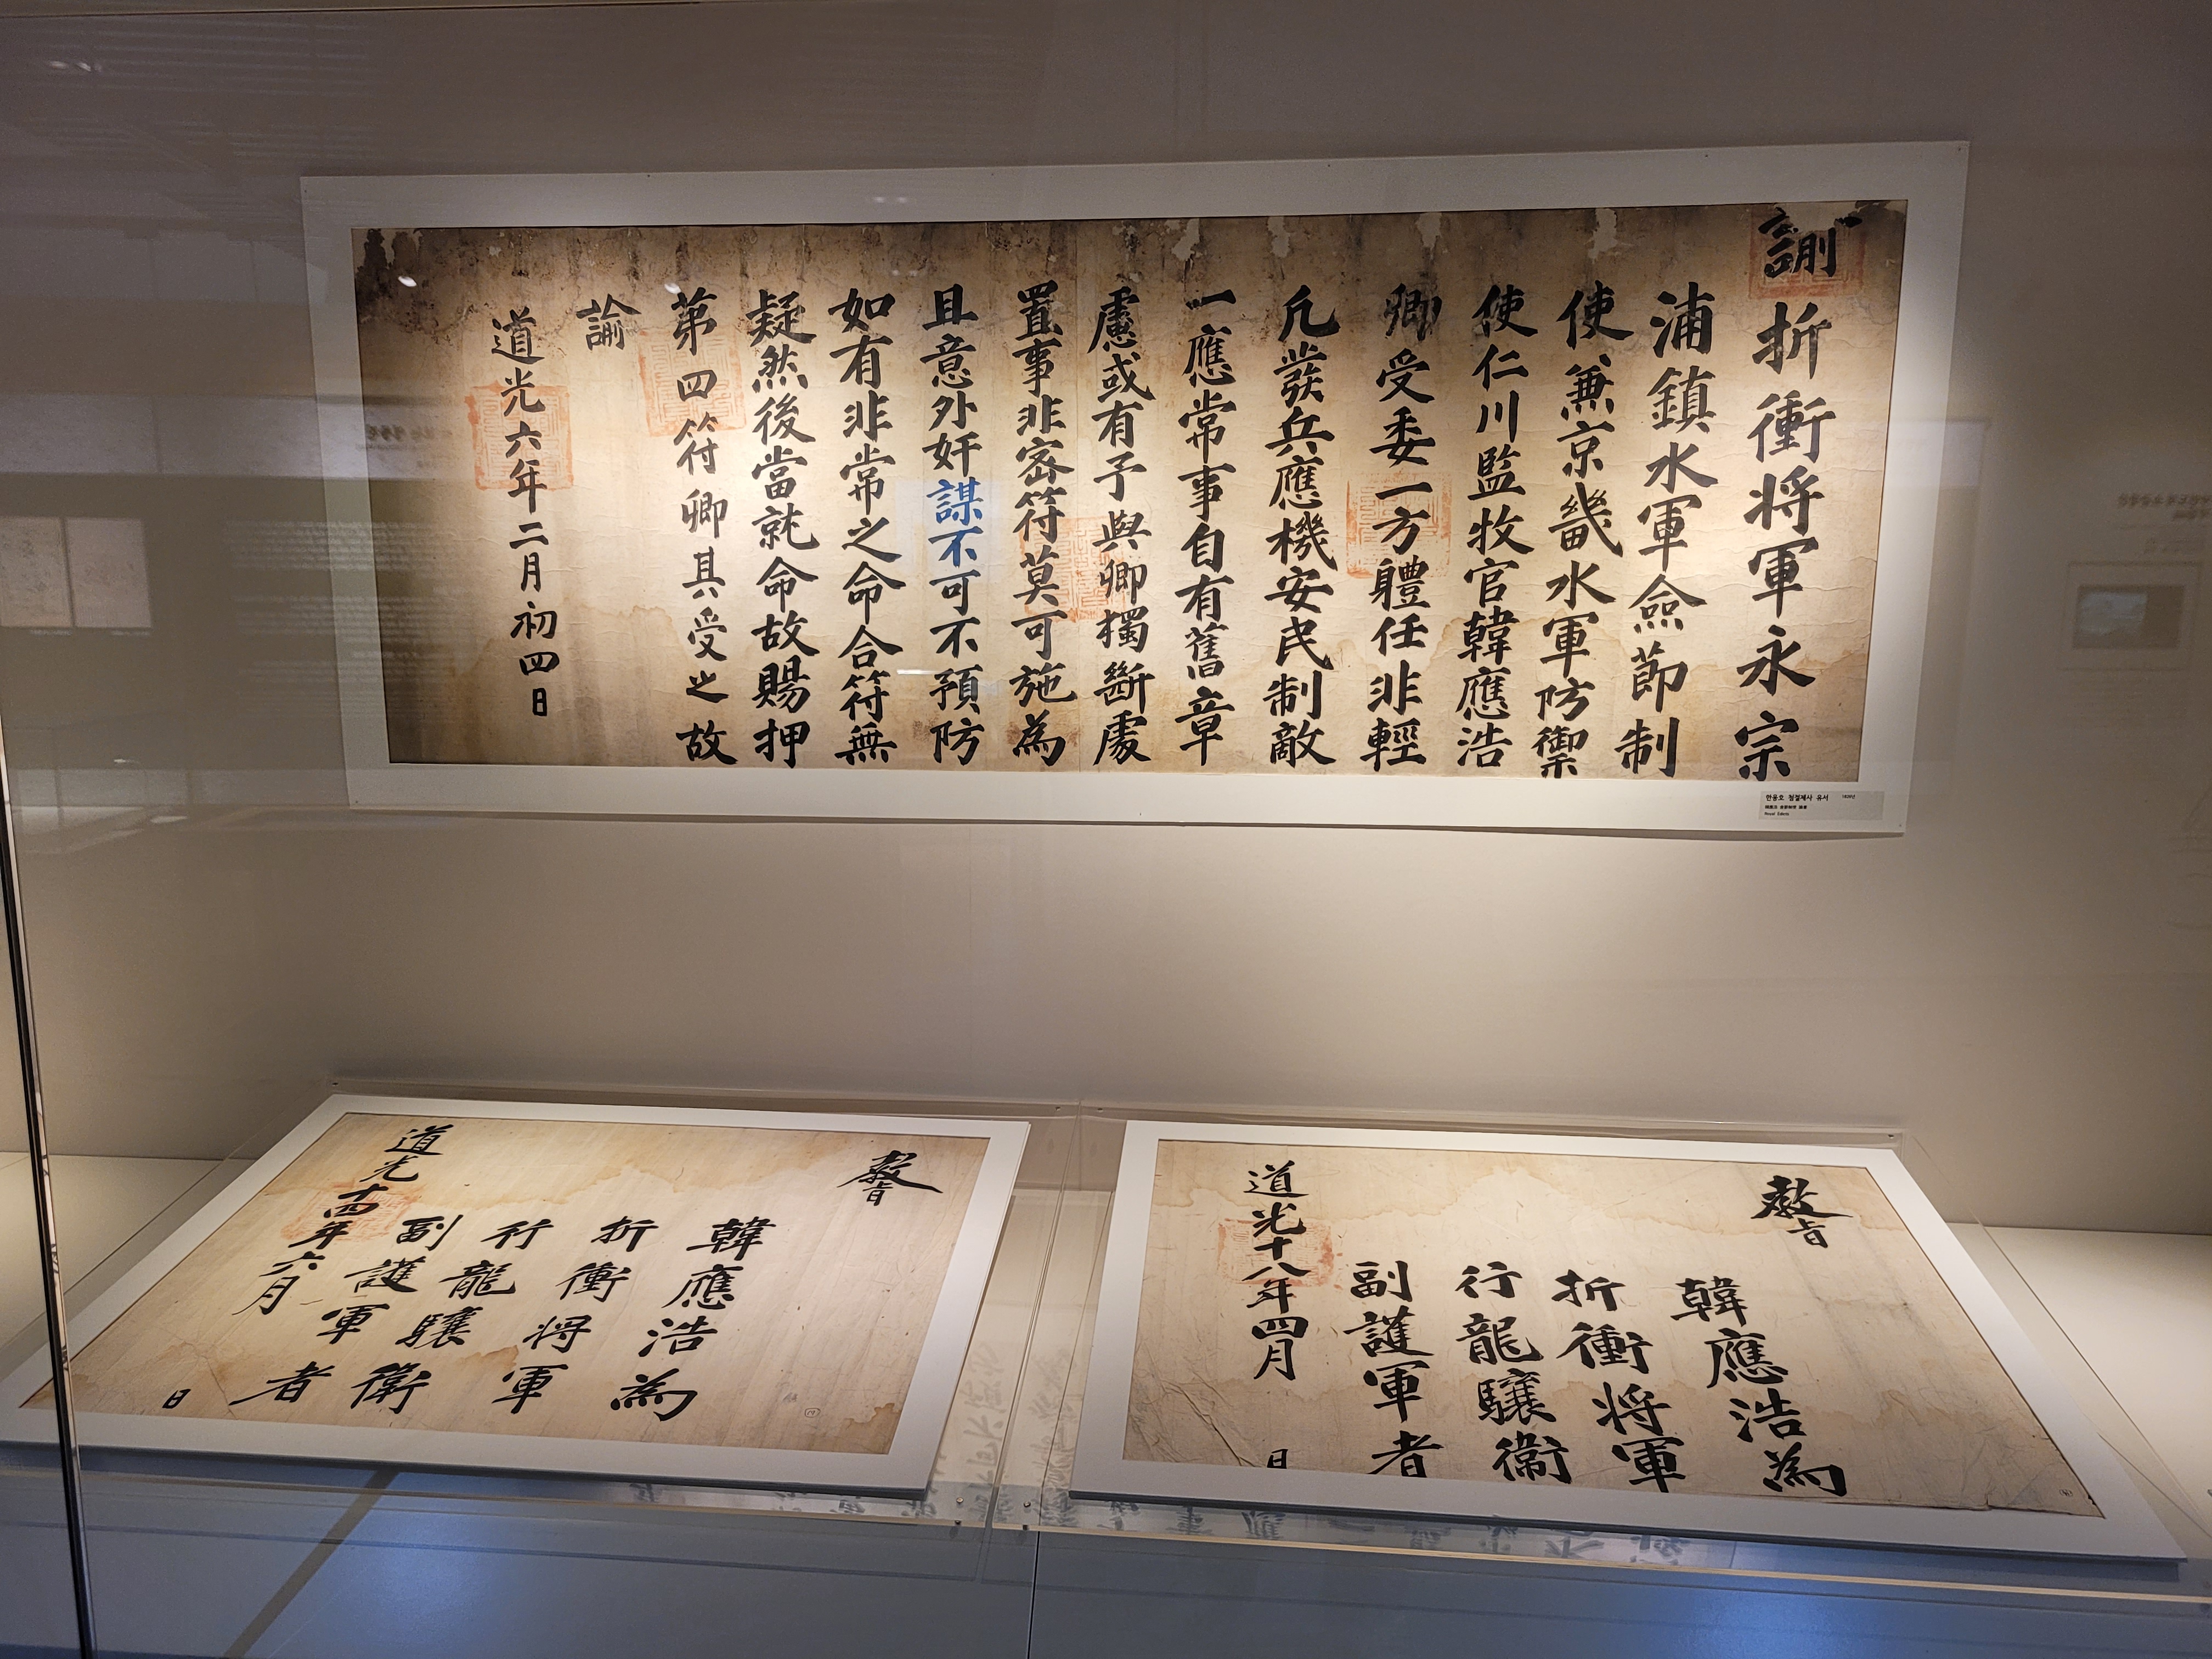 諭折衝将軍永宗
浦鎮水軍僉節制
使兼京畿水軍防禦
使仁川監牧官韓應浩
卿受委一方體任非輕
凡發兵應機安民制敵
一應常事自有舊章
慮或有予與卿獨斷處
置事非密符莫可施為
且意外奸謀不可不預防
如有非常之命合符無
疑然後當就命故賜押
第四符卿其受之故
諭
道光六年二月初四日
한응호 첨절제사 유서 1826년
Royal Edicts
敎旨
韓應浩為
折衝将軍
行龍驤衛
副護軍者
道光十四年六月 日
敎旨
韓應浩為
折衝将軍
行龍驤衛
副護軍者
道光十八年四月 日